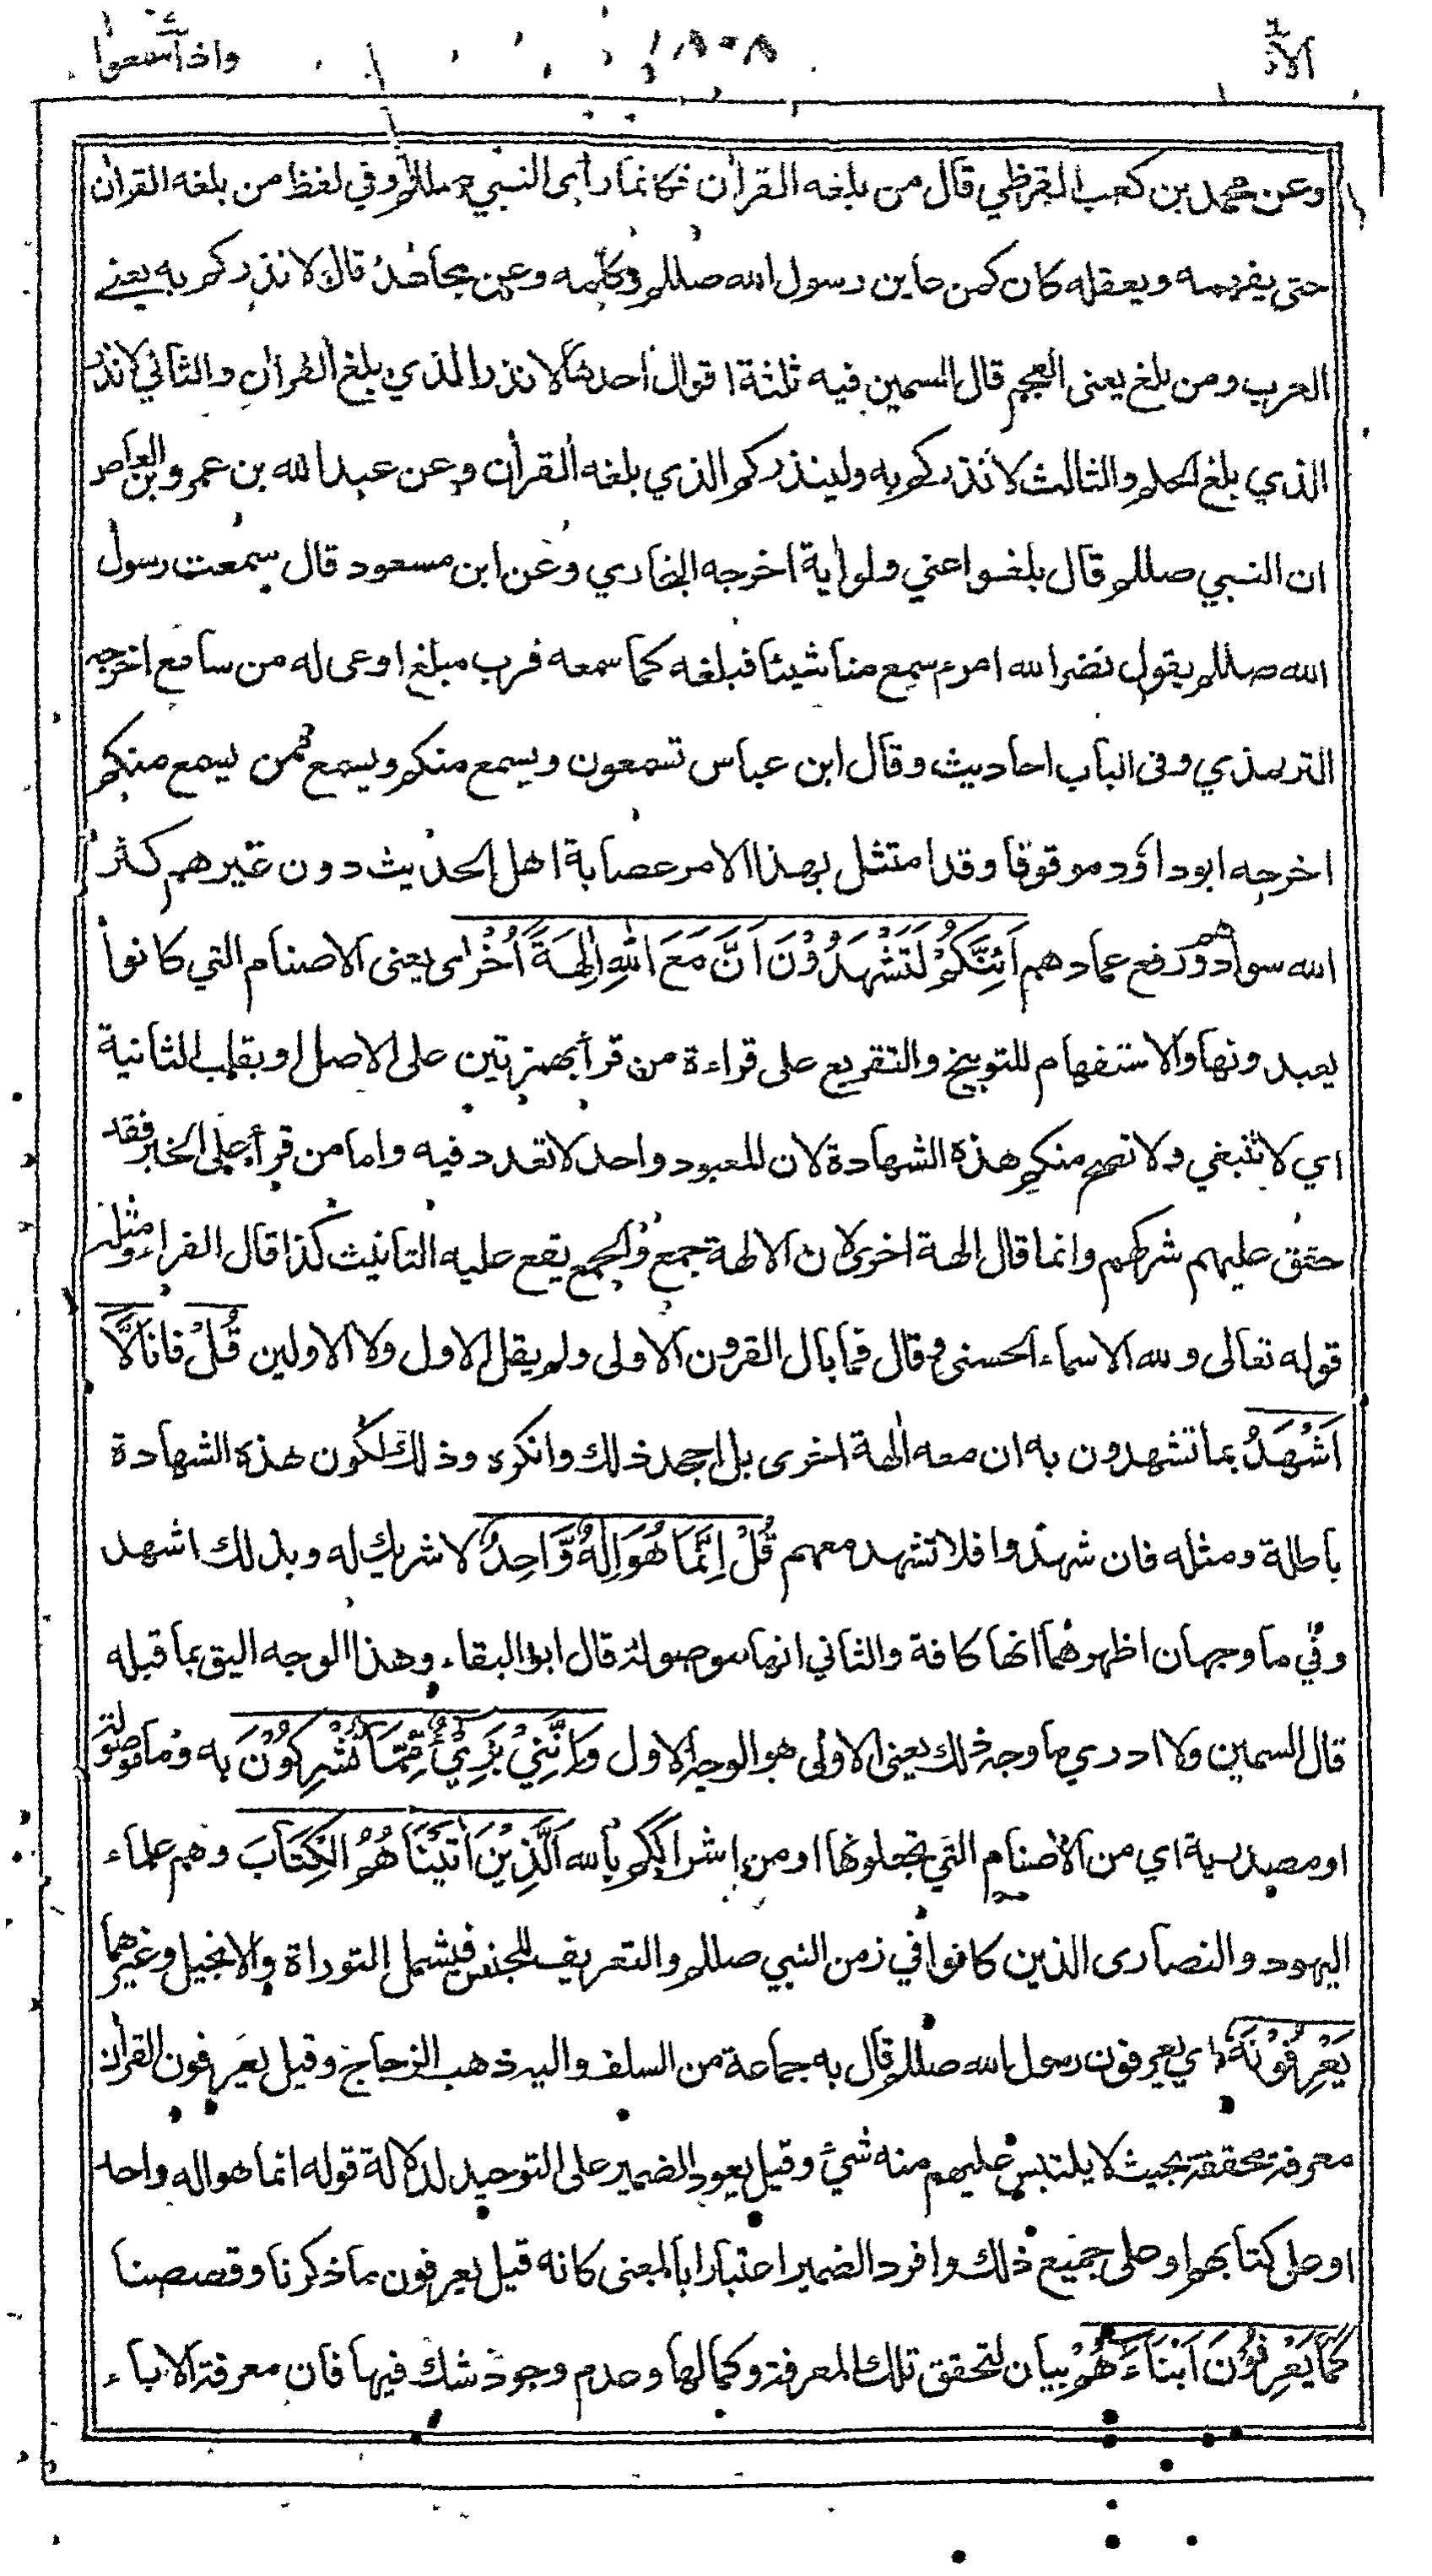 واذا سمعوا ٨٠٨ الأنعام
وعن محمد بن كعب القرظي قال من بلغه القرأن فكانما رأى النبي صللم وفي لفظ من بلغه القرأن
حتى يفهمه ويعقله كان كمن عاين رسول الله صللم وكلمه وعن مجاهد قال لانذركم به يعنے
العرب ومن بلغ يعنى العجم قال السمين فيه ثلثة اقوال احدها لانذر الذي بلغ القرأن والثاني لانذر
الذي بلغ الحلم والثالث لانذركم به ولينذركم الذي بلغه القرأن وعن عبدالله بن عمرو بن العاص
ان النبي صللم قال بلغوا عني ولو أية اخرجه البخاري وعن ابن مسعود قال سمعت رسول
الله صللم يقول نضر الله امرء سمع منا شيئا فبلغه كما سمعه فرب مبلغ اوعى له من سامع اخرجه
الترمذي وفى الباب احاديث وقال ابن عباس تسمعون ويسمع منكم ويسمع ممن يسمع منكم
اخرجه ابو داؤد موقوفا وقد امتثل بهذا الامر عصابة اهل الحديث دون غيرهم كثر
الله سوادهم ورفع عمادهم اَئِنَّكُمْ لَتَشْهَدُوْنَ اَنَّ مَعَ اللّٰهِ اٰلِهَةً اُخْرٰى يعنى الاصنام التي كانوا
يعبدونها والاستفهام للتوبيخ والتقريع على قراءة من قرأ بهمزتين على الاصل او بقلب الثانية
اي لا تنبغي ولا تصح منكم هذه الشهادة لان المعبود واحد لا تعدد فيه واما من قرأ على الخبر فقد
حقق عليهم شركهم وانما قال الهة اخرى لان الالهة جمع والجمع يقع عليه التانيث كذا قال الفراء ومثله
قوله تعالى ولله الاسماء الحسنى وقال فما بال القرون الاولى ولم يقل الاول ولا الاولين قُلْ فانا لَّا
اَشْهَدُ بما تشهدون به ان معه الهة اخرى بل اجحد ذلك وانكره وذلك لكون هذه الشهادة
باطلة ومثله فان شهدوا فلا تشهد معهم قُلْ اِنَّمَا هُوَ اِلٰهٌ وَّاحِدٌ لا شريك له وبذلك اشهد
وفي ما وجهان اظهرهما انها كافة والثاني انها موصولة قال ابو البقاء وهذا الوجه اليق بما قبله
قال السمين ولا ادري ما وجه ذلك يعنى الاولى هو الوجه الاول وَاِنَّنِيْ بَرِيْٓءٌ مِّمَّا تُشْرِكُوْنَ به وما موصولة
او مصدرية اي من الاصنام التي تجعلونها او من اشراككم بالله اَلَّذِيْنَ اٰتَيْنَاهُمُ الْكِتَابَ وهم علماء
اليهود والنصارى الذين كانوا في زمن النبي صللم والتعريف للجنس فيشمل التوراة والانجيل وغيرهما
يَعْرِفُوْنَهٗ اي يعرفون رسول الله صللم قال به جماعة من السلف واليه ذهب الزجاج وقيل يعرفون القرأن
معرفة محققة بحيث لا يلتبس عليهم منه شيئ وقيل يعود الضمير على التوحيد لدلالة قوله انما هو اله واحد
او على كتابهم او على جميع ذلك وافرد الضمير اعتبارا بالمعنى كانه قيل يعرفون ما ذكرنا وقصصنا
كَمَا يَعْرِفُوْنَ اَبْنَآءَهُمْ بيان لتحقق تلك المعرفة وكمالها وعدم وجود شك فيها فان معرفة الاباء